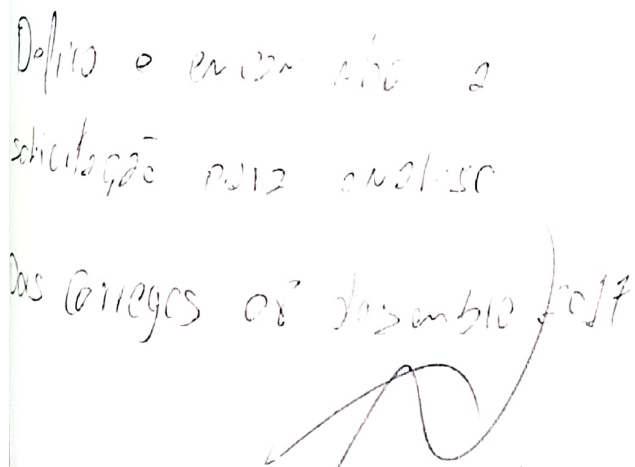 Defiro o encaminho a
solicitação para análise
Das Corregos 08 dezembro 2017